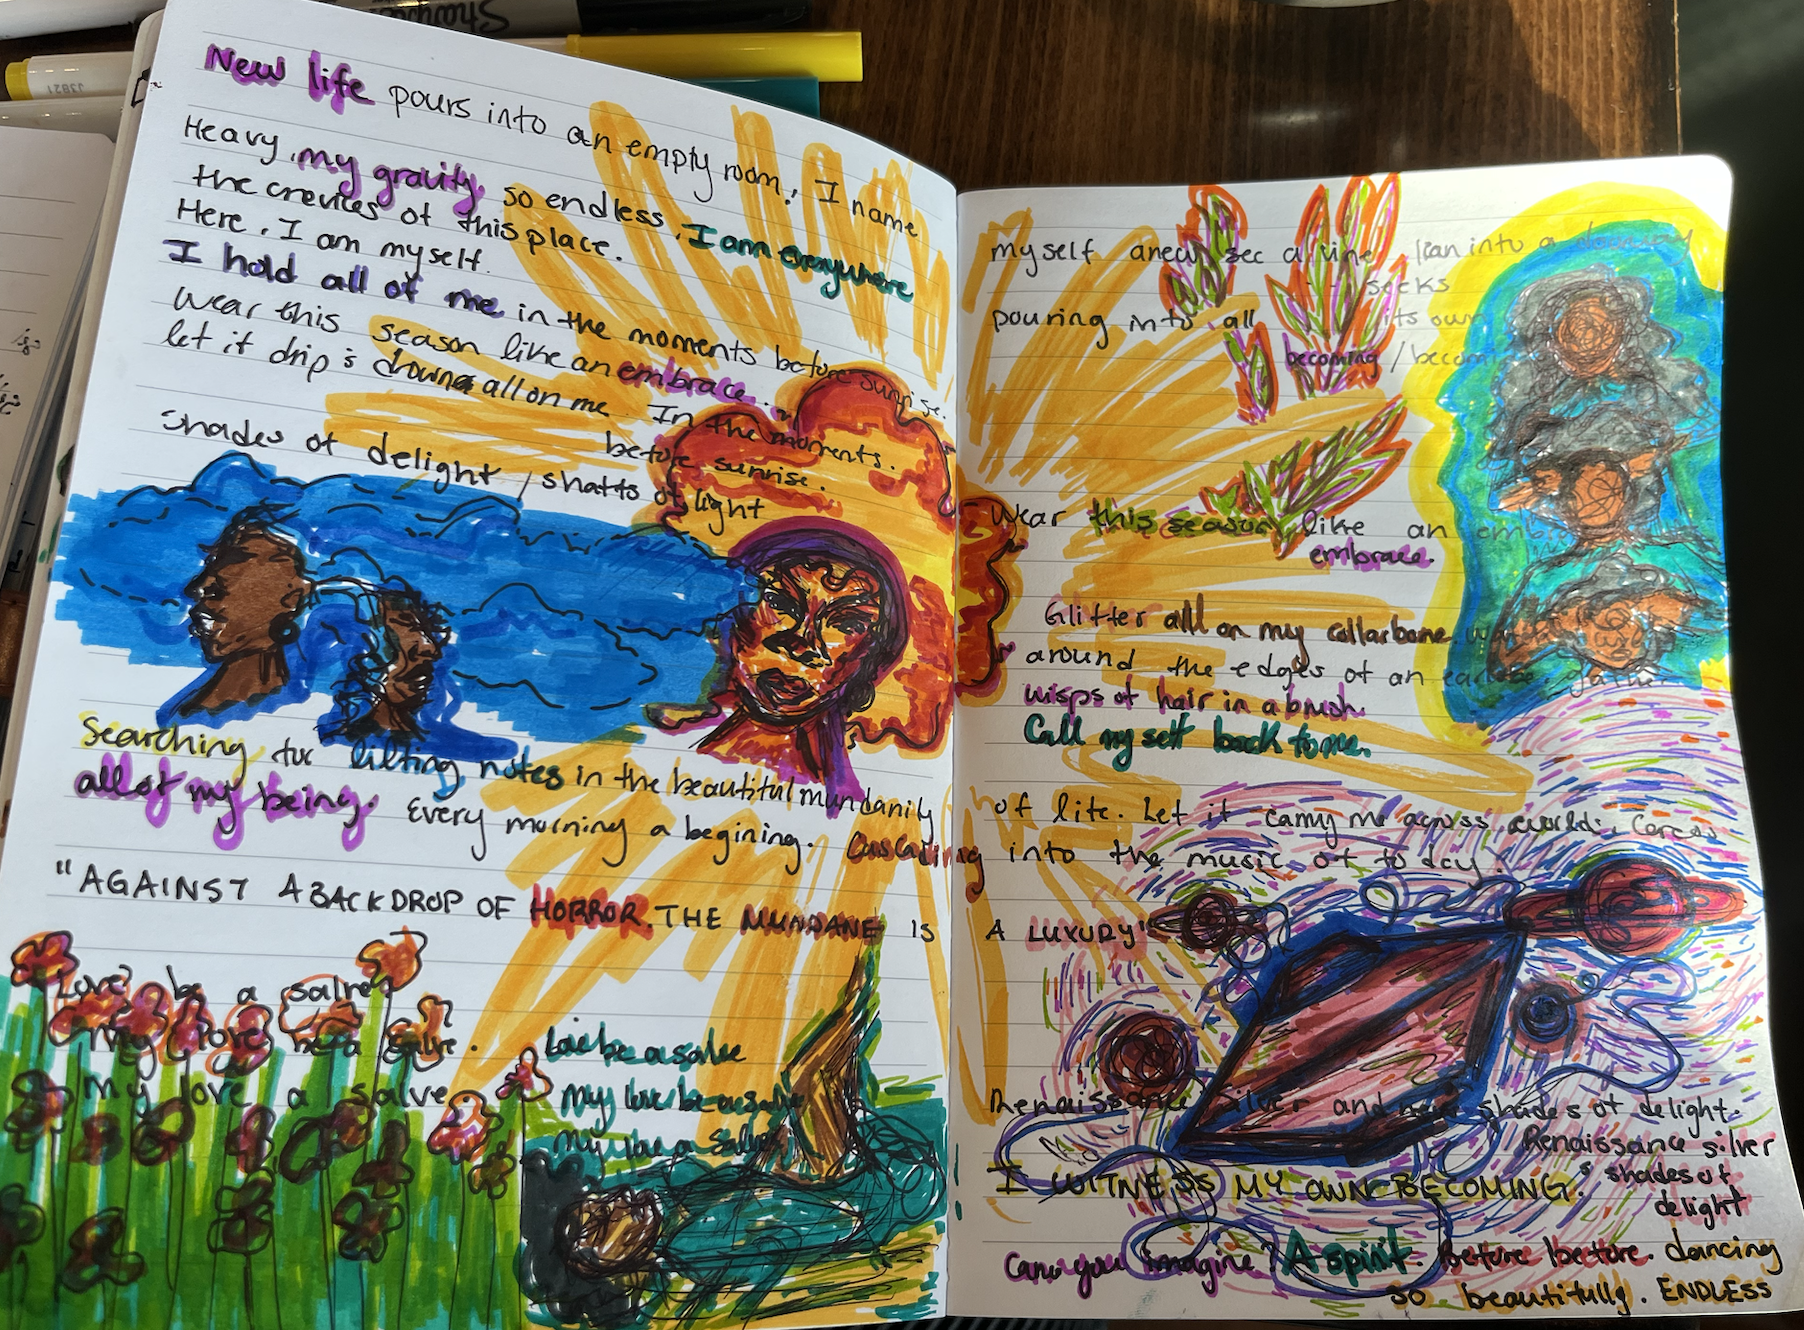 Sharpie
J3821
New life pours into an empty room. I name
Heavy, my gravity, so endless, I am everywhere
the crevices of this place.
Here. I am myself.
I hold all of me in the moments before sunrise.
Wear this season like an embrace.
let it drip & down all on me. In the moments.
before sunrise.
Shades of delight / shafts of light
Searching for lilting notes in the beautiful mundanity
all of my being. Every morning a begining. Cascading
"AGAINST A BACKDROP OF HORROR. THE MUNDANE IS
Love be a salve
my love be a salve.
my love a salve
Love be a salve
my love be a salve
my love a salve
myself anew see a vine lean into a
seeks
pouring into all its own
becoming / becom
Wear this season like an embra
embrace.
Glitter all on my collarbone.
around the edges of an earlobe, gather
wisps of hair in a brush.
Call myself back to me.
of life. Let it carry me across worlds.
into the music of today.
A LUXURY"
Renaissance Silver and new shades of delight.
Renaissance silver
& shades of
delight
I WITNESS MY OWN BECOMING.
Can you imagine? A spirit. before before. dancing
so beautifully. ENDLESS